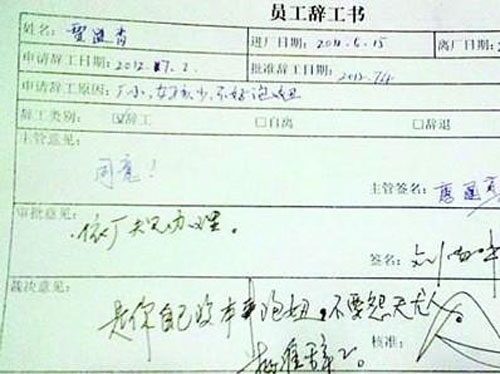 员工辞工书
姓名： 进厂日期：2011.5.15 离厂日期：
申请辞工日期：2012.7.2 批准辞工日期：2012.7/4
申请辞工原因：厂小，女孩少，不好泡妞
辞工类别： ☑辞工 □自离 □辞退
主管意见：
同意！
主管签名：
审批意见：
依厂规办理。
签名：
裁决意见：
是你自己没本事泡妞，不要怨天尤人。
核准：
批准辞工。